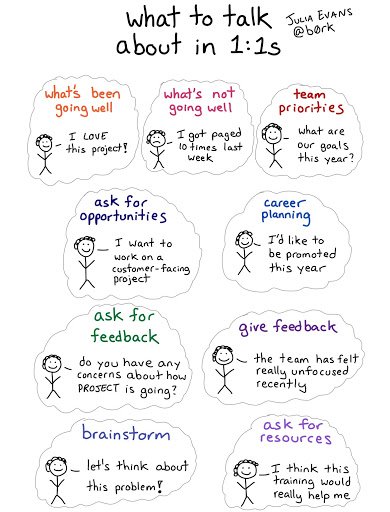 what to talk
about in 1:1s
JULIA EVANS
@b0rk
what's been
going well
I LOVE
this project!
what's not
going well
I got paged
10 times last
week
team
priorities
what are
our goals
this year?
ask for
opportunities
I want to
work on a
customer-facing
project
career
planning
I'd like to
be promoted
this year
ask for
feedback
do you have any
concerns about how
PROJECT is going?
give feedback
the team has felt
really unfocused
recently
brainstorm
let's think about
this problem!
ask for
resources
I think this
training would
really help me